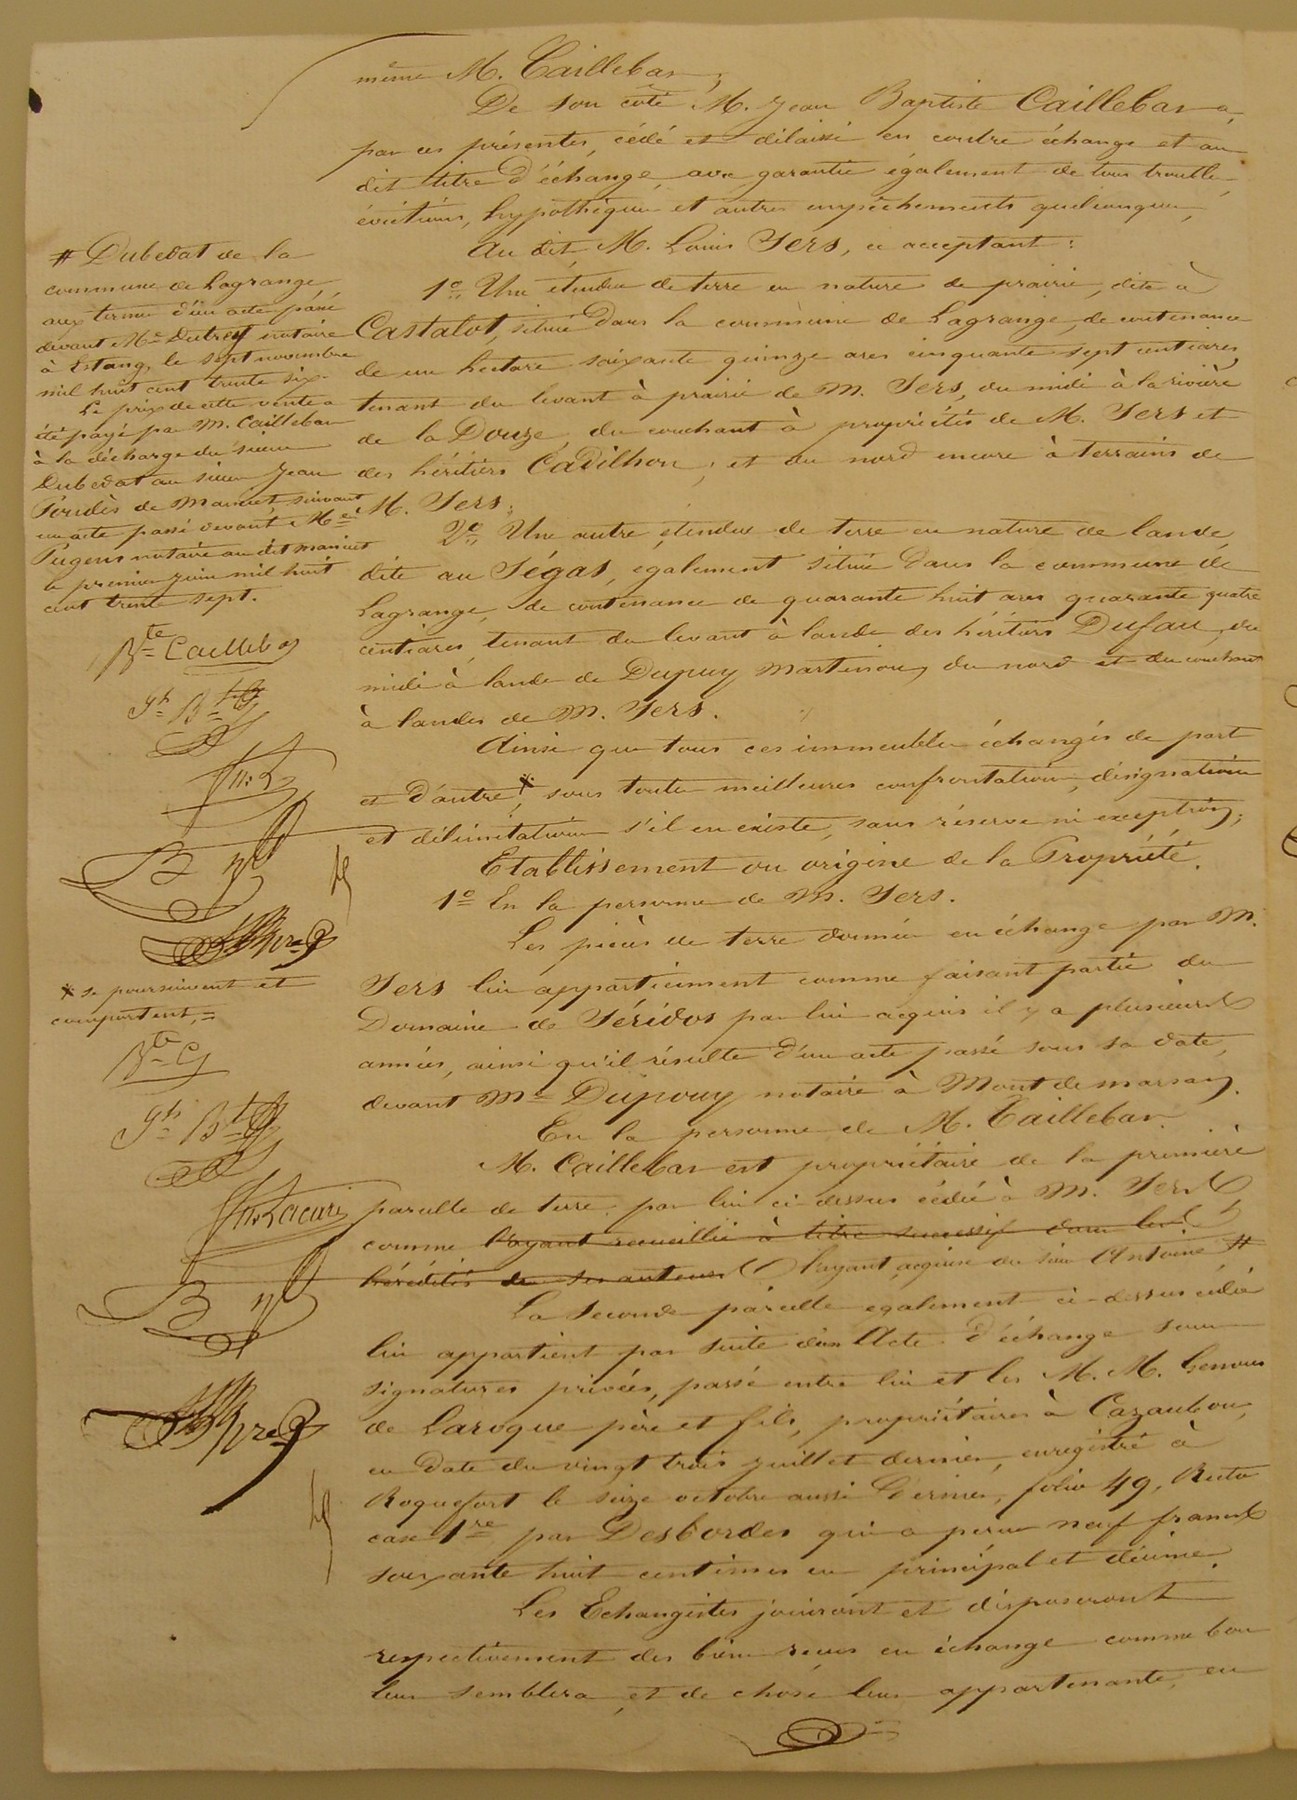 même M. Caillebar;
De son côté M. Jean Baptiste Caillebar a,
par ces présentes, cédé et délaissé en contre échange et au
dit titre d'échange, avec garantie également de tous troubles,
évictions, hypothèques et autres empêchements quelconques,
Au dit M. Louis Sers, ce acceptant:
1º Une étendue de terre en nature de prairie, dite à
Castalot, située dans la commune de Lagrange, de contenance
de un hectare soixante quinze ares cinquante sept centiares,
tenant du levant à prairie de M. Sers, du midi à la rivière
de la Douze, du couchant à propriétés de M. Sers et
des héritiers Cadilhon, et du nord encore à terrains de
M. Sers;
2º Une autre étendue de terre en nature de lande,
dite au Ségas, également située dans la commune de
Lagrange, de contenance de quarante huit ares quarante quatre
centiares, tenant du levant à lande des héritiers Dufau, du
midi à lande de Dupuy Martinon, du nord et du couchant
à landes de M. Sers.
Ainsi que tous ces immeubles échangés de part
et d'autre *, sous toutes meilleures confrontations, désignations
et délimitations s'il en existe, sans réserve ni exception;
Etablissement ou origine de la Propriété.
1º En la personne de M. Sers.
Les pièces de terre données en échange par M.
Sers lui appartiennent comme faisant partie du
Domaine de Séridos par lui acquis il y a plusieurs
années, ainsi qu'il résulte d'un acte passé sous sa date,
devant Me Dupouy notaire à Mont de marsan.
En la personne de M. Caillebar.
M. Caillebar est propriétaire de la première
parcelle de terre par lui ci-dessus cédée à M. Sers
comme l'ayant recueillie à titre successif dans les
hérédités de ses auteurs l'ayant acquise du sieur Antoine #
La Seconde parcelle également ci-dessus cédée
lui appartient par suite d'un Acte d'échange sous
signatures privées, passé entre lui et les M. M.
de Laroque père et fils, propriétaires à Cazaubon,
en date du vingt trois juillet dernier, enregistré à
Roquefort le seize octobre aussi dernier, folio 49, Recto
case 1re par Desbordes qui a perçu neuf francs
soixante huit centimes en principal et décime.
Les Echangistes jouiront et disposeront
respectivement des biens reçus en échange comme bon
leur semblera, et de chose leur appartenante, en
# Dubedat de la
commune de Lagrange,
aux termes d'un acte passé
devant Me notaire
à Estang, le sept novembre
mil huit cent trente six.
Le prix de cette vente a
été payé par M. Caillebar
à la décharge du sieur
Dubedat au sieur Jean
Poudès de Mauvezin, suivant
un acte passé devant Me
Pugens notaire au dit
le premier juin mil huit
cent trente sept.
Bte Caillebar
* se poursuivent et
comportent,=
Bte C
Lacurie